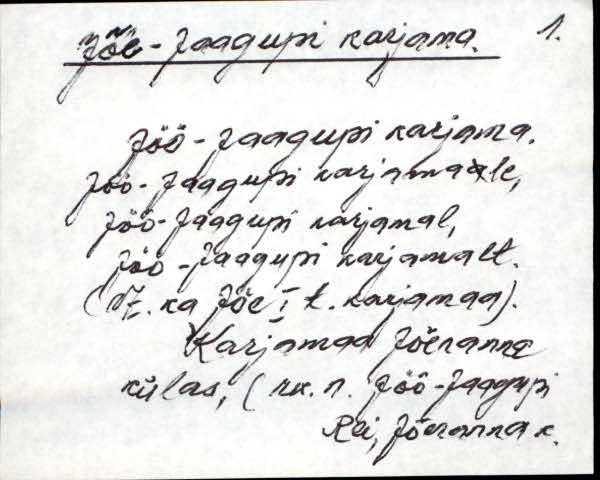 1.
Jõe-Jaagupi karjama.
Jöö-Jaagupi karjama.
Jöö-Jaagupi karjamaale,
Jöö-Jaagupi karjamal,
Jöö-Jaagupi karjamalt.
(Vt. ka Jõe I t. karjamaa).
Karjamaa Jõeranna
külas, (rk. n. Jöö-Jaagupi
Rei, Jõeranna k.